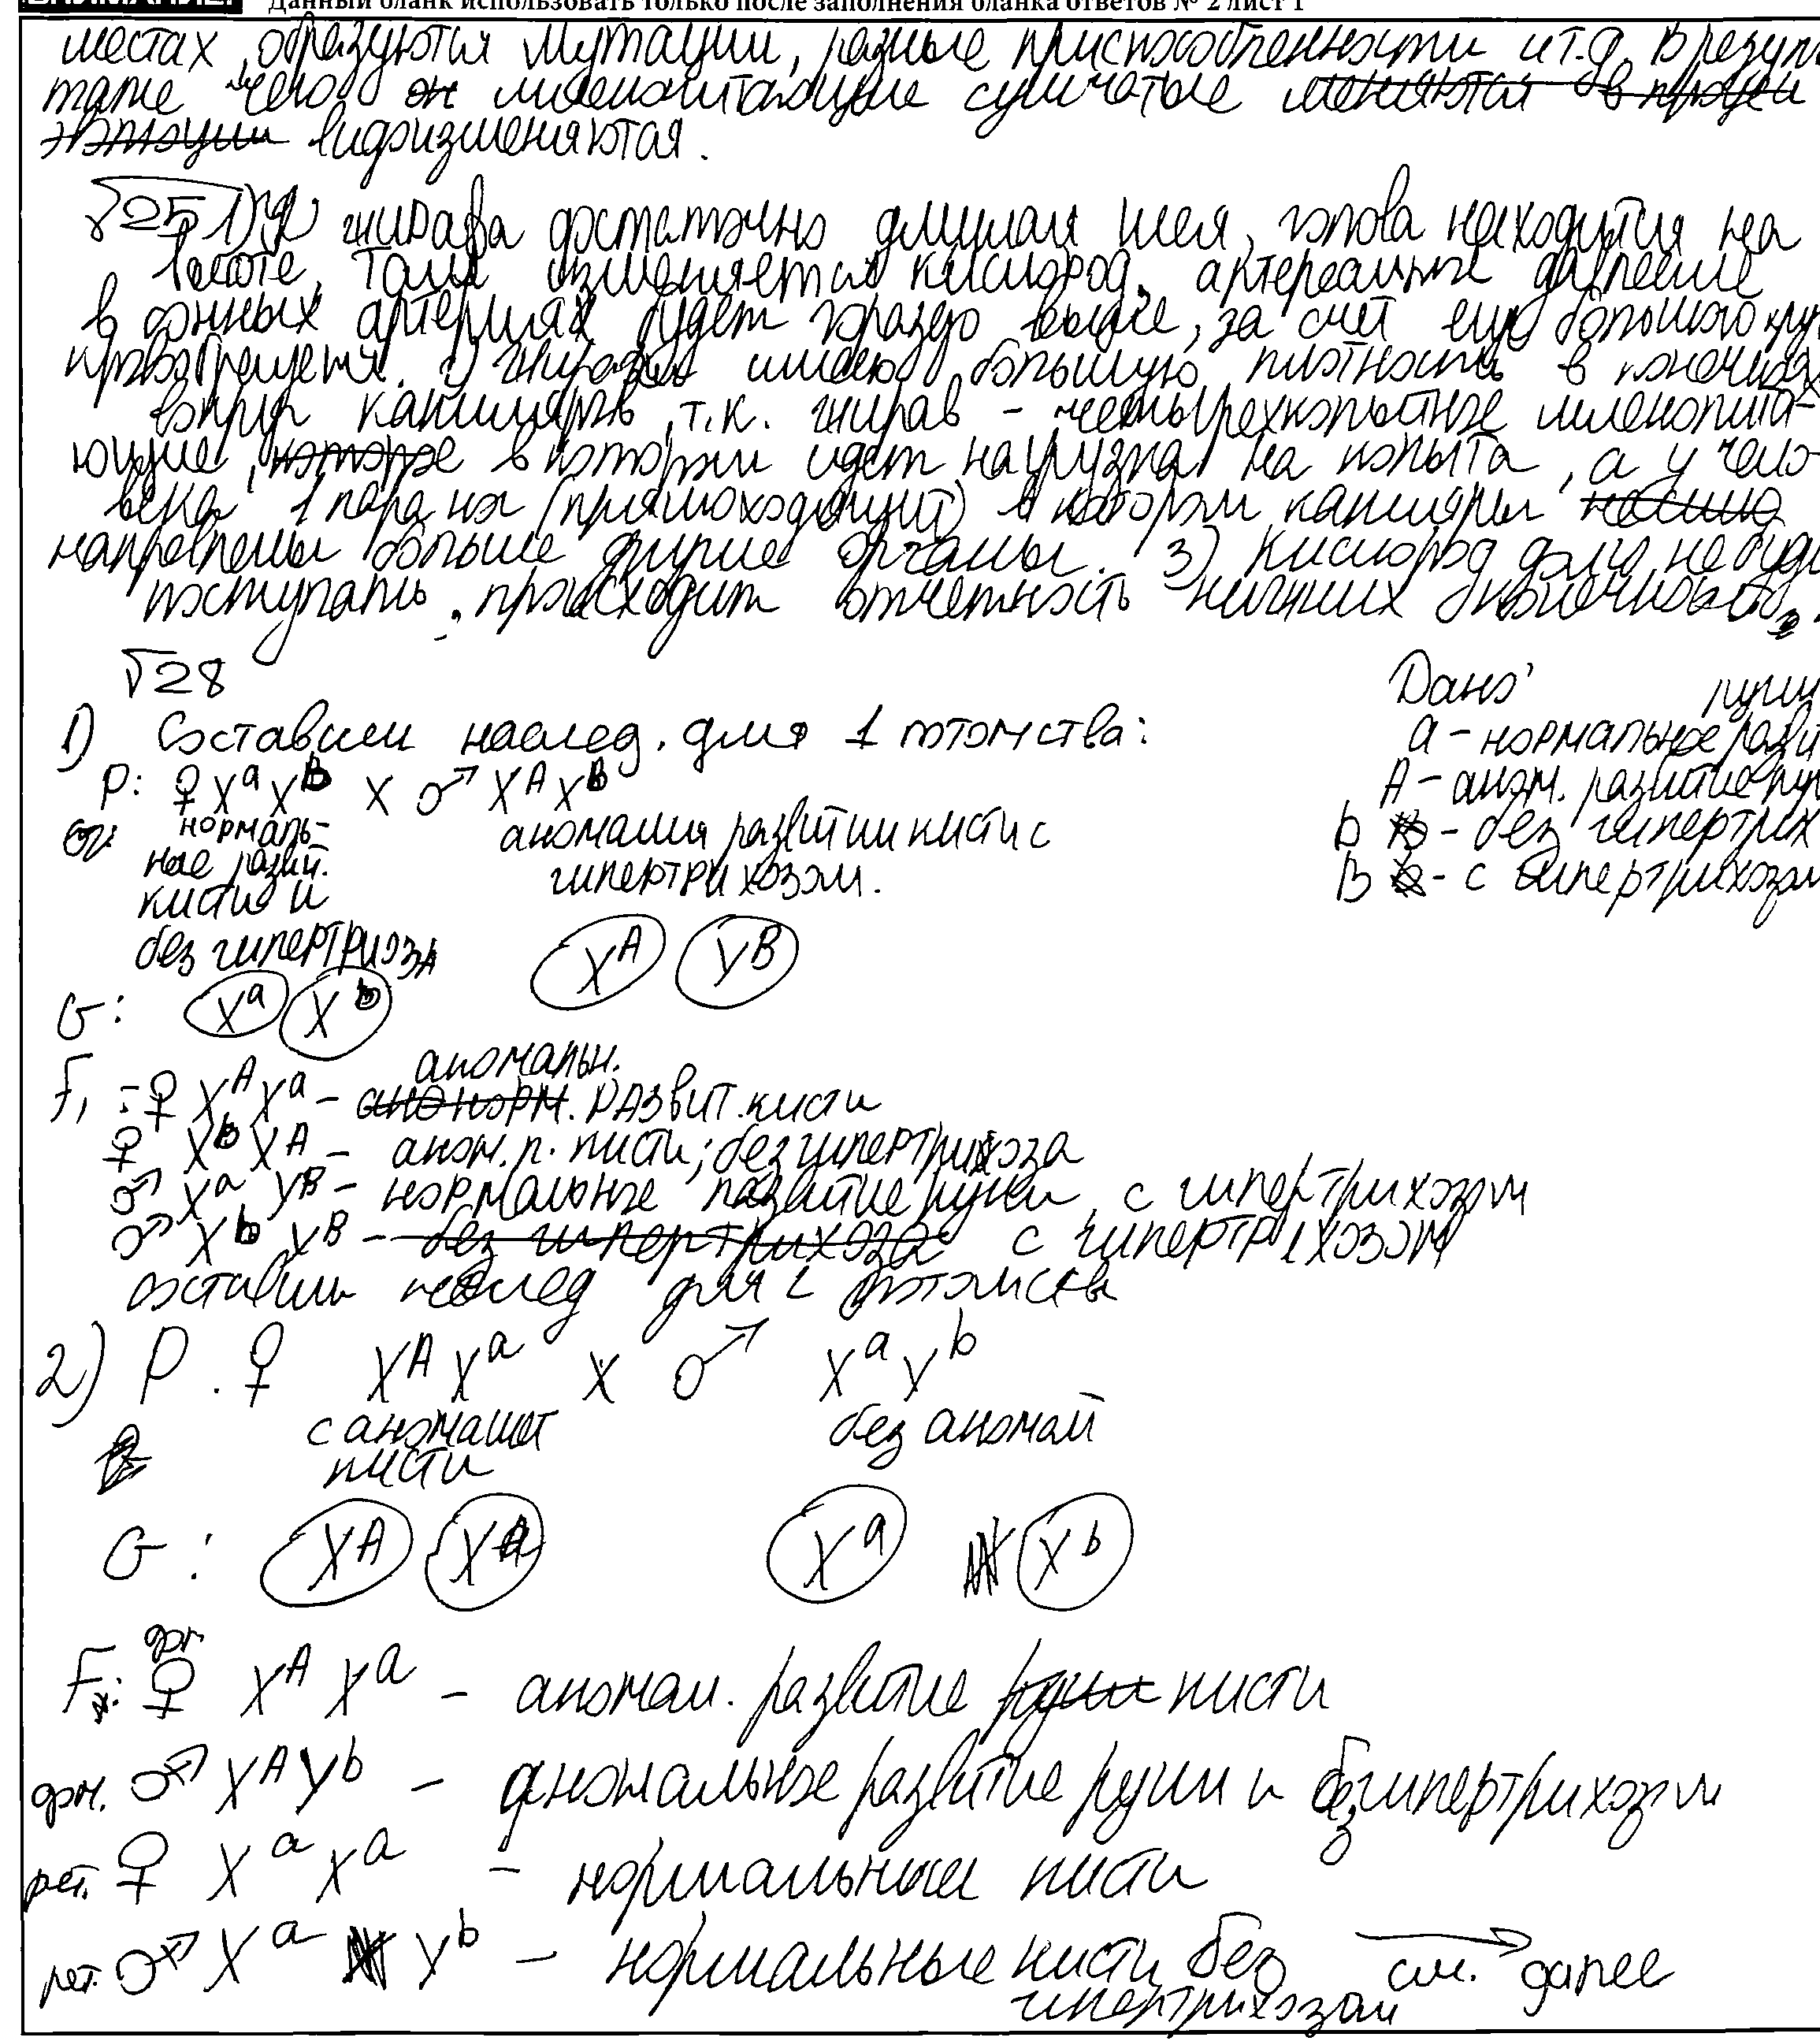 Данный бланк использовать только после заполнения бланка ответов № 2 лист 1
местах, образуются мутации, разные приспособленности и т.д. В резуль
тате чего млекопитающие сумчатые меняются в
видоизменяются.
√25 1) У жирафа достаточно длинная шея, голова находится на
высоте, там изменяется кислород, артереальное давление
в сонных артериях будет гораздо выше, за счёт ещё большого кру
кровобращения. 2) жирафы имеют большую плотность в конечнях
вокруг капилляров, т.к. жираф - четырехкопытное млекопита-
ющие, которое в котором идет нагрузка на копыта, а у чело-
века 1 пара ног (прямоходящий) в котором капиляры
направлены больше другие органы. 3) Кислород долго не буд
поступать, происходит отчетность нижних
√28
Дано:
1) Составим наслед. для 1 потомства:
a - нормальное разви
P: ♀ XᵃXᵇ x ♂ XᴬXᴮ
A - аном. развитие ру
нормаль-
ное разви.
кисти и
без гипертриоза
аномалия развитии кисти с
гипертрихозом.
b - без гипертрих
B - с гипертрихозом
Xᴬ Yᴮ
G: Xᵃ Xᵇ
аномальн.
F₁: ♀ XᴬXᵃ - анонорм. развит. кисти
♀ XᵇXᴬ - аном. р. кисти; без гипертрихоза
♂ Xᵃ Yᴮ - нормальное развитие руки, с гипертрихозом
♂ Xᵇ Yᴮ - без гипертрихоза с гипертрихозом
составим наслед для 2 потомства
2) P. ♀ XᴬXᵃ x ♂ XᵃYᵇ
с аномалией
кисти
без аномай
G: Xᴬ Xᵃ Xᵃ Xᵇ
F: доч. ♀ Xᴬ Xᵃ - аномал. развитие руки кисти
♂ XᴬYᵇ - аномальное развитие руки и без гипертрихозом
♀ Xᵃ Xᵃ - нормальные кисти
♂ Xᵃ Yᵇ - нормальные кисти без см. далее
гипертрихозом